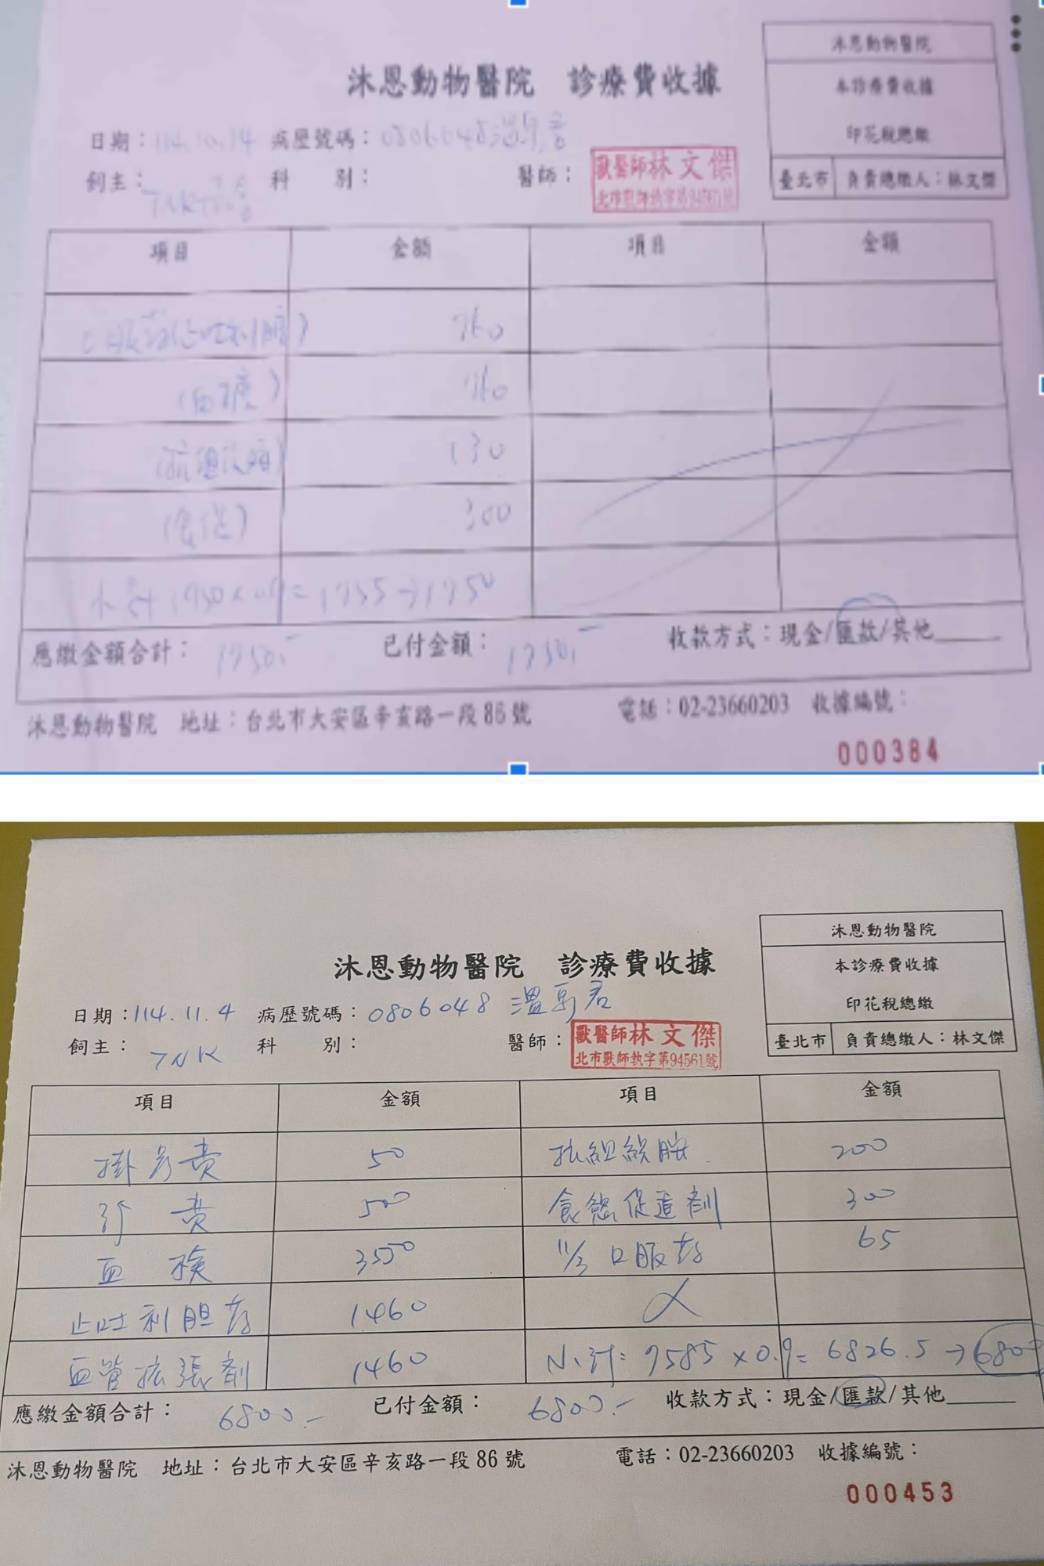 沐恩動物醫院
本診療費收據
印花稅總繳
臺北市 負責總繳人：林文傑
沐恩動物醫院 診療費收據
日期：114.10.14 病歷號碼：0806048
飼主： 科 別： 醫師： 獸醫師林文傑
項目 金額 項目 金額
760
(血糖) 760
130
300
應繳金額合計： 已付金額： 收款方式：現金/匯款/其他
沐恩動物醫院 地址：台北市大安區辛亥路一段86號 電話：02-23660203 收據編號：
000384
沐恩動物醫院
本診療費收據
印花稅總繳
臺北市 負責總繳人：林文傑
沐恩動物醫院 診療費收據
日期：114.11.4 病歷號碼：0806048 溫
飼主：TNK 科 別： 醫師： 獸醫師林文傑
北市獸師執字第94561號
項目 金額 項目 金額
掛号費 50 200
診費 500 食慾促進劑 300
血檢 3550 11/3 口服葯 65
止吐利胆葯 1460
血管拡張劑 1460 小計：7585×0.9=6826.5→6800
應繳金額合計：6800.- 已付金額：6800.- 收款方式：現金/匯款/其他
沐恩動物醫院 地址：台北市大安區辛亥路一段86號 電話：02-23660203 收據編號：
000453